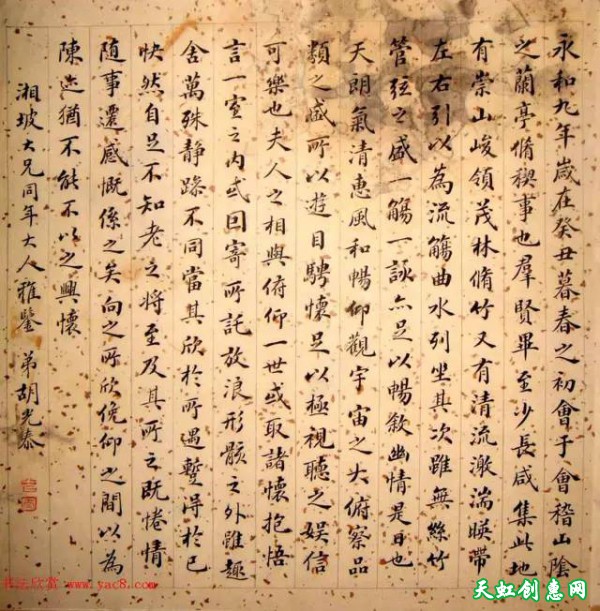 永和九年歲在癸丑暮春之初會于會稽山陰
之蘭亭脩稧事也群賢畢至少長咸集此地
有崇山峻領茂林脩竹又有清流激湍暎帶
左右引以為流觴曲水列坐其次雖無絲竹
管弦之盛一觴一詠亦足以暢敘幽情是日也
天朗氣清惠風和暢仰觀宇宙之大俯察品
類之盛所以遊目騁懷足以極視聽之娛信
可樂也夫人之相與俯仰一世或取諸懷抱悟
言一室之內或因寄所託放浪形骸之外雖趣
舍萬殊靜躁不同當其欣於所遇蹔得於己
快然自足不知老之將至及其所之既惓情
随事遷感慨係之矣向之所欣俛仰之間以為
陳迹猶不能不以之興懷
湘坡大兄同年大人雅鑒 弟胡光泰
书法欣赏 www.yac8.com
天虹创惠网